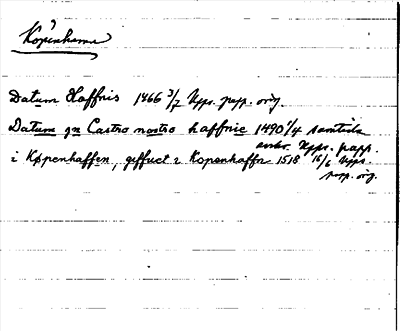 Köpenhamn
Datum Haffnis 1466 3/7 Upps. papp. orig.
Datum in Castro nostro haffnie 1490 1/4 samtida
avskr. Upps. papp.
i Köpenhaffen, giffuet i Kopenhaffn 1518 16/6 Upps.
papp. orig.